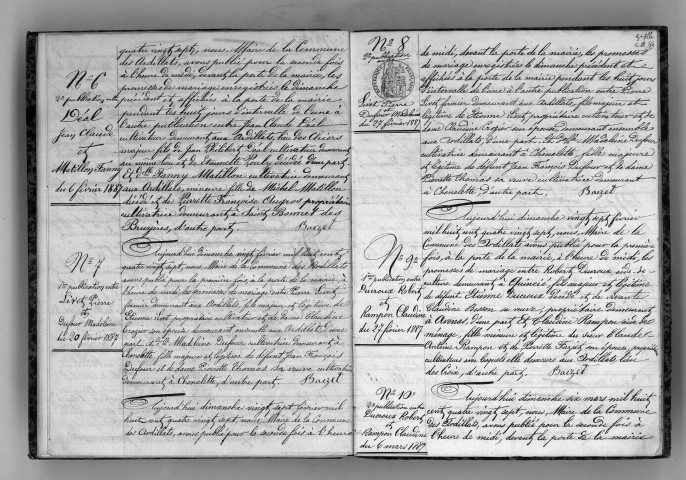 quatre vingt sept, nous, Maire de la Commune
des Ardillats, avons publié pour la seconde fois
à l'heure de midi, devant la porte de la mairie, les
promesses de mariage enregistrées le dimanche
précédent et affichées à la porte de la mairie
pendant les huit jours d'intervalle de l'une à
l'autre publication entre Jean Claude Déal
cultivateur demeurant aux Ardillats, lieu des
majeur fils de Jean Philibert Déal cultivateur demeurant
au même lieu et de Jeannette décédée d'une part
Et Dlle Fanny Matillon cultivatrice demeurant
aux Ardillats, mineure fille de Michel Matillon
décédé et de Pierrette Françoise propriétaire
cultivatrice demeurant à Saint Bonnet des
Bruyères, d'autre part.
No 6
2e publication entre
Déal
Jean Claude
et
Matillon Fanny
du 6 février 1887
Aujourd'hui dimanche vingt février mil huit cent
quatre vingt sept, nous, Maire de la Commune des Ardillats
avons publié pour la première fois, à la porte de la mairie, à
l'heure de midi, les promesses de mariage entre Pierre
fermier demeurant aux Ardillats, fils majeur et légitime de
Etienne propriétaire cultivateur et de dame Claudine
son épouse demeurant ensemble aux Ardillats d'une
part. et Dlle Madeleine Dufour cultivatrice demeurant à
Chenelette, fille majeure et légitime de défunt Jean François
Dufour et de dame Pierrette Thomas sa veuve cultivatrice
demeurant à Chenelette, d'autre part.
No 7
1re publication entre
Pierre
et
Dufour Madeleine
du 20 février 1887
Aujourd'hui dimanche vingt sept février mil
huit cent quatre vingt sept, nous, Maire de la Commune
des Ardillats, avons publié pour la seconde fois à l'heure
No 8
2e publication
Pierre
Dufour Madeleine
du 27 février 1887
de midi, devant la porte de la mairie, les promesses
de mariage enregistrées le dimanche précédent et
affichées à la porte de la mairie pendant les huit jours
d'intervalle de l'une à l'autre publication entre Pierre
fermier demeurant aux Ardillats, fils majeur et
légitime de Etienne propriétaire cultivateur et de
dame Claudine son épouse demeurant ensemble
aux Ardillats, d'une part. Et Dlle Madeleine Dufour
cultivatrice demeurant à Chenelette, fille majeure
et légitime de défunt Jean François Dufour et de dame
Pierrette Thomas sa veuve cultivatrice demeurant
à Chenelette d'autre part.
Aujourd'hui dimanche vingt sept février
mil huit cent quatre vingt sept, nous, Maire de la
Commune des Ardillats avons publié pour la première
fois à la porte de la mairie, à l'heure de midi, les
promesses de mariage entre Robert Ducroux aide de
culture demeurant à Quincié, fils majeur et légitime
de défunt Etienne Ducroux décédé et de vivante
Claudine Besson sa veuve, propriétaire demeurant
à Avenas, d'une part et Claudine Rampon aide de
ménage, fille mineure et légitime du sieur Claude
Antoine Rampon et de Pierrette son épouse, propriétaires
cultivateurs avec lesquels elle demeure aux Ardillats lieu
des d'autre part.
No 9
1re publication entre
Ducroux Robert
et
Rampon Claudine
du 27 février 1887
No 10
2e publication entre
Ducroux Robert
et
Rampon Claudine
du 6 mars 1887
Aujourd'hui dimanche six mars mil huit
cent quatre vingt sept, nous, Maire de la Commune
des Ardillats, avons publié pour la seconde fois à
l'heure de midi, devant la porte de la mairie